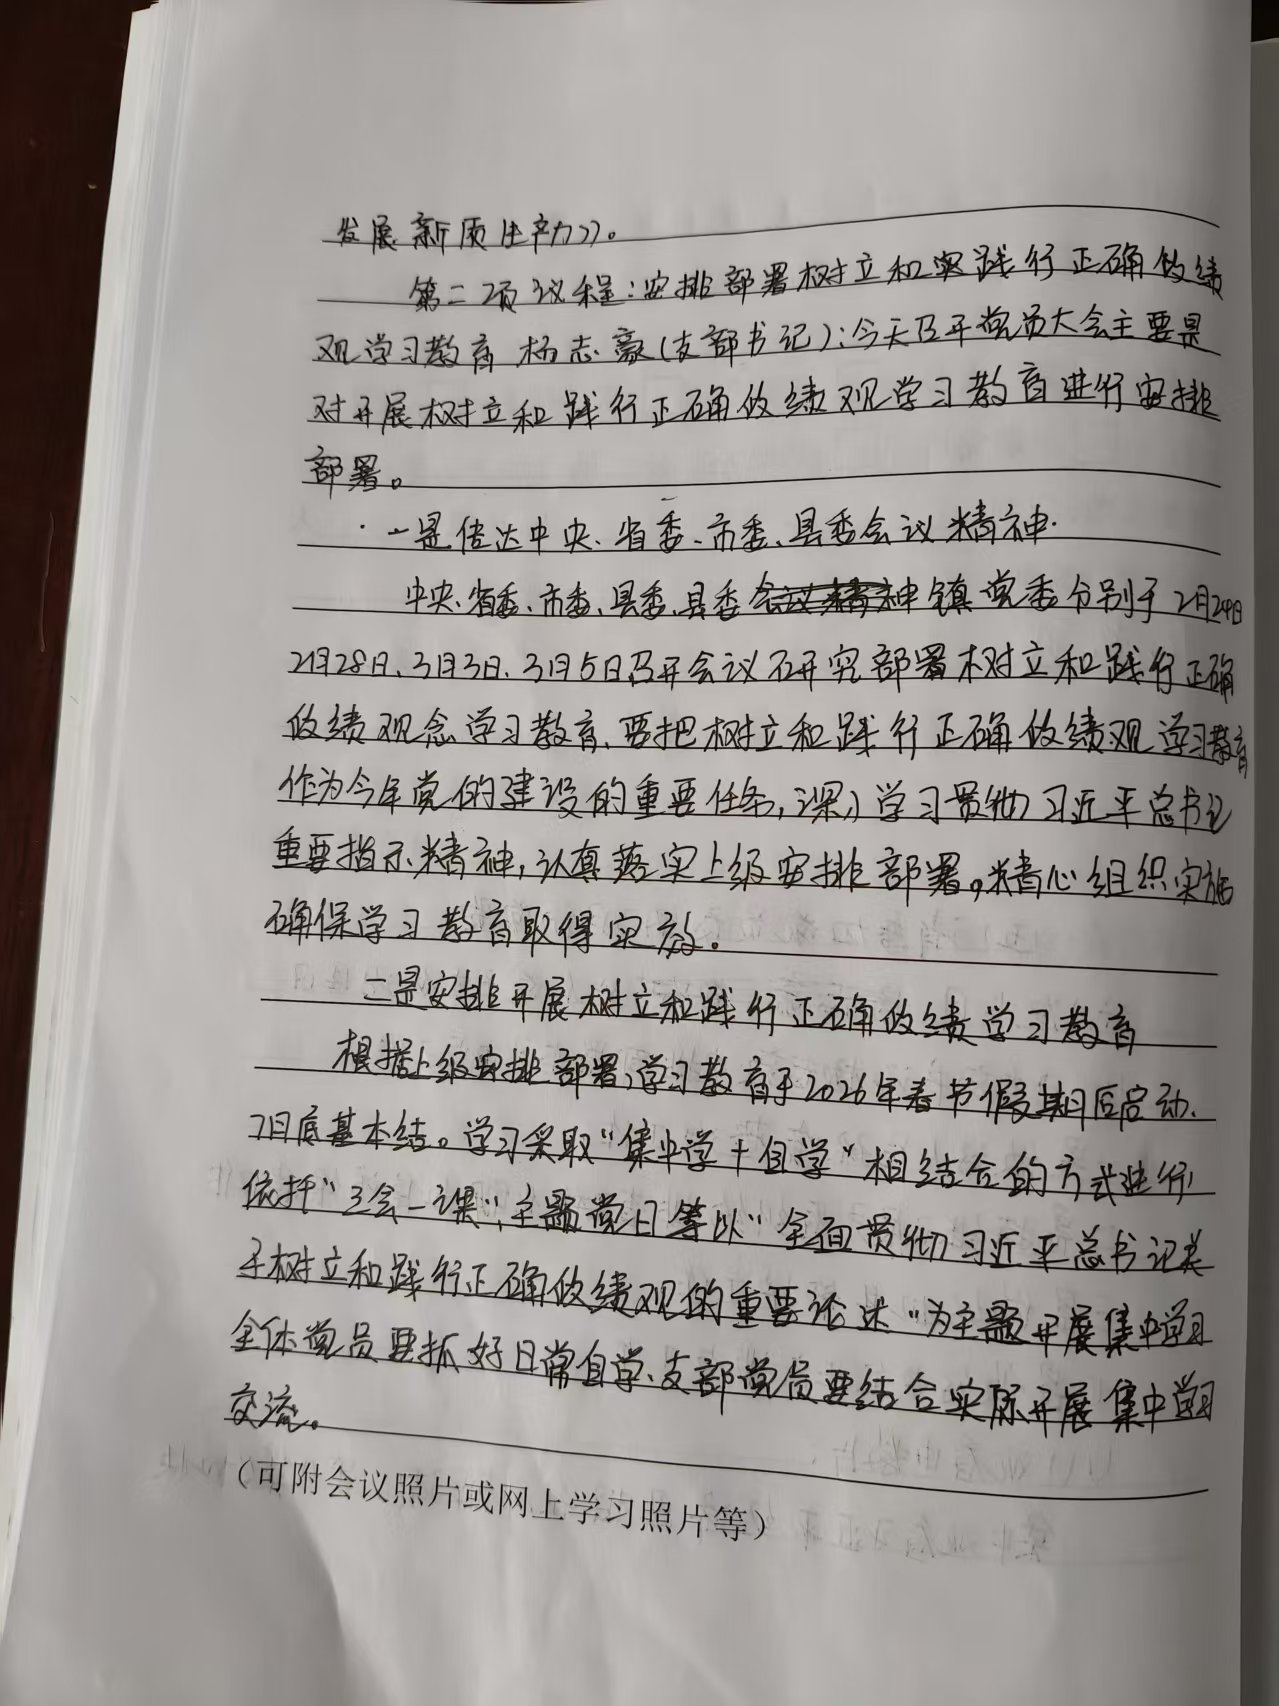 发展新质生产力》。
第二项议程：安排部署树立和实践行正确政绩
观学习教育 杨志豪（支部书记）：今天召开党员大会主要是
对开展树立和践行正确政绩观学习教育进行安排
部署。
一是传达中央、省委、市委、县委会议精神.
中央、省委、市委、县委、县委会议精神镇党委分别于2月24日
2月28日、3月3日、3月5日召开会议研究部署树立和践行正确
政绩观念学习教育、要把树立和践行正确政绩观学习教育
作为今年党的建设的重要任务，深入学习贯彻习近平总书记
重要指示精神，认真落实上级安排部署。精心组织实施
确保学习教育取得实效。
二是安排开展树立和践行正确政绩学习教育
根据上级安排部署，学习教育于2026年春节假期后启动、
7月底基本结。学习采取“集中学+自学”相结合的方式进行，
依托“三会一课”，主题党日等以“全面贯彻习近平总书记关
于树立和践行正确政绩观的重要论述”为主题开展集中学习
全体党员要抓好日常自学、支部党员要结合实际开展集中学习
交流。
（可附会议照片或网上学习照片等）